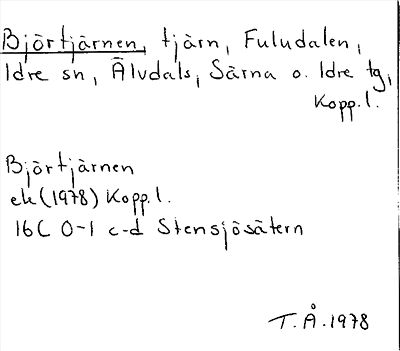 Björtjärnen, tjärn, Fuludalen,
Idre sn, Älvdals, Särna o. Idre tg,
Kopp. l.
Björtjärnen
ek (1978) Kopp. l.
16C 0-1 c-d Stensjösätern
T.Å. 1978